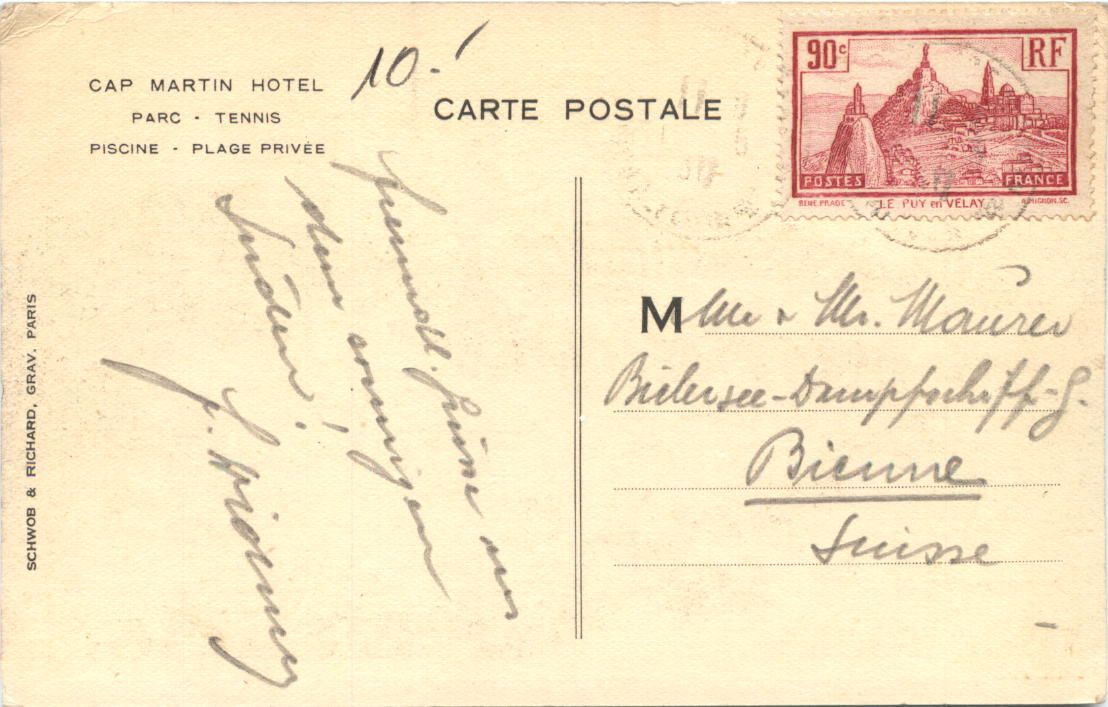 CAP MARTIN HOTEL
PARC - TENNIS
PISCINE - PLAGE PRIVÉE
10.-
CARTE POSTALE
90c RF
POSTES FRANCE
LE PUY en VELAY
freundl. Grüsse aus
dem sonnigen
Süden!
SCHWOB & RICHARD, GRAV. PARIS
Mme & Mr. Maurer
Bielersee-Dampfschiff-G.
Bienne
Suisse